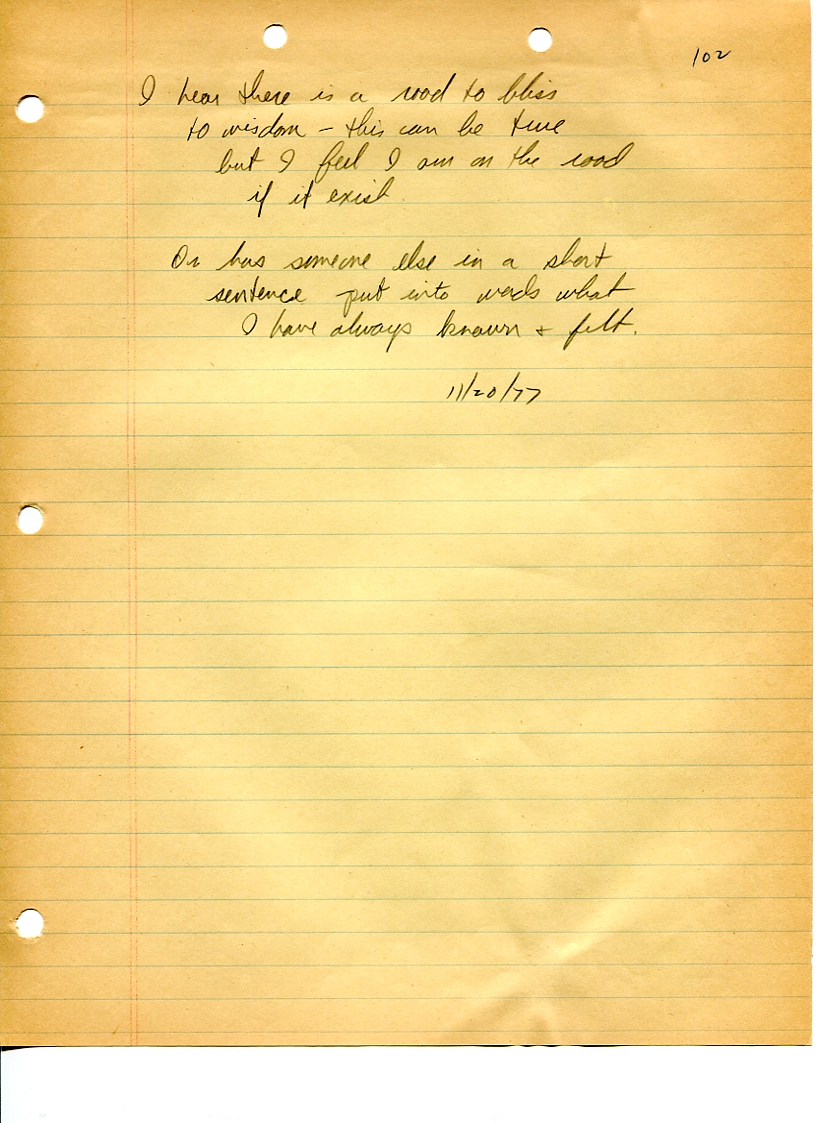 102
I hear there is a road to bliss
to wisdom – this can be true
but I feel I am on the road
if it exist.
Or has someone else in a short
sentence put into words what
I have always known + felt.
11/20/77